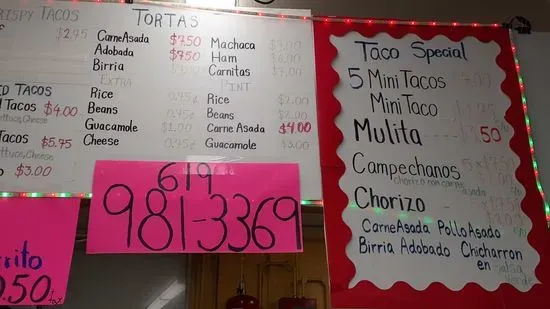 RISPY TACOS
$2.95
TORTAS
Carne Asada $7.50
Adobada $7.50
Birria
EXTRA
Rice
Beans
Guacamole $1.00
Cheese
Machaca
Ham
Carnitas
PINT
Rice $2.00
Beans
Carne Asada $4.00
Guacamole $3.00
ED TACOS
d Tacos $4.00
ettuce, Cheese
Tacos $5.75
ettuce, Cheese
$3.00
619
981-3369
rrito
0.50
Taco Special
5 Mini Tacos
Mini Taco
Mulita 50
Campechanos
chorizo con carne asada
Chorizo
Carne Asada Pollo Asado
Birria Adobado Chicharron
en Salsa